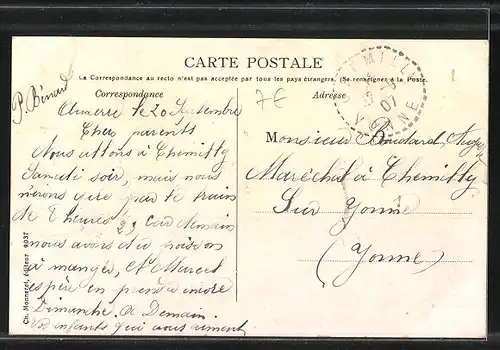 CARTE POSTALE
La Correspondance au recto n'est pas acceptée par tous les pays étrangers. (Se renseigner à la Poste)
Correspondance
Adresse
P. Bénard
7E
Auxerre le 20 Septembre
Chers parents
Nous allons à Chemilly
Samedi soir, mais nous
n'irons que par le train
de 8 heures
nous avons du poisson
à manger, et Marcel
espère en prendre encore
Dimanche. A Demain.
Vos enfants qui vous aiment
Monsieur Boudard
Maréchal à Chemilly
Sur Yonne
(Yonne)
07
YONNE
Ch. Monnot, éditeur 8037